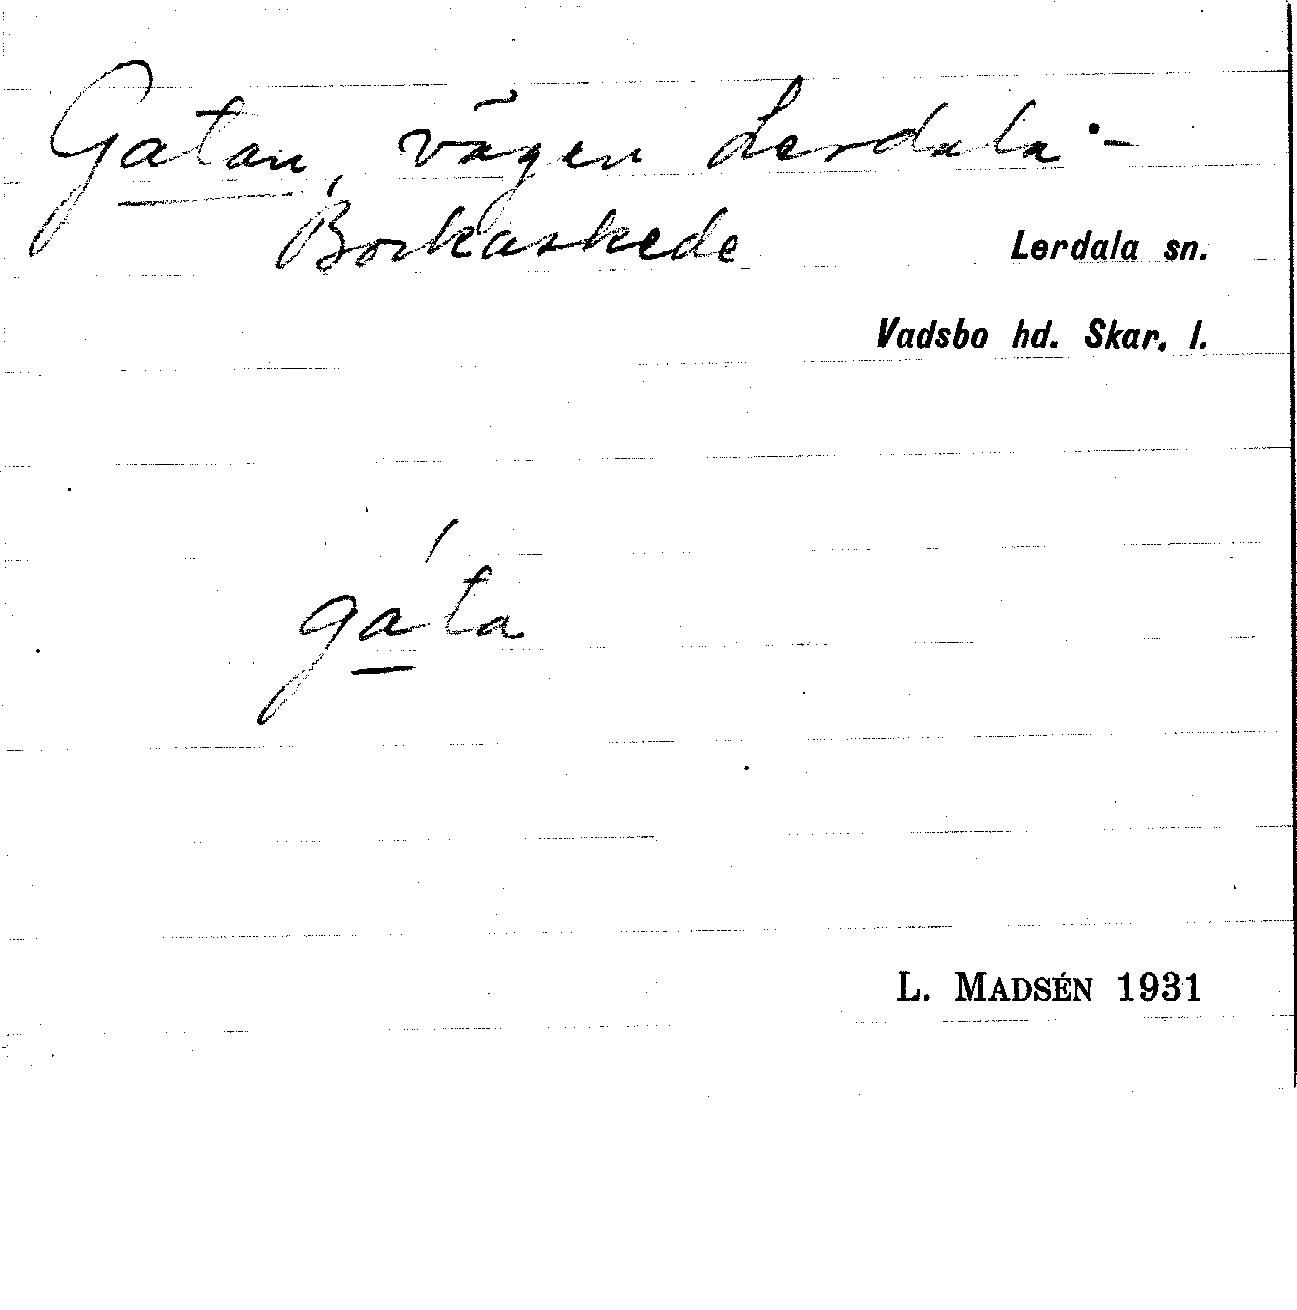 Gatan, vägen Lerdala -
Borkaskede
Lerdala sn.
Vadsbo hd. Skar. l.
gáta
L. MADSÉN 1931